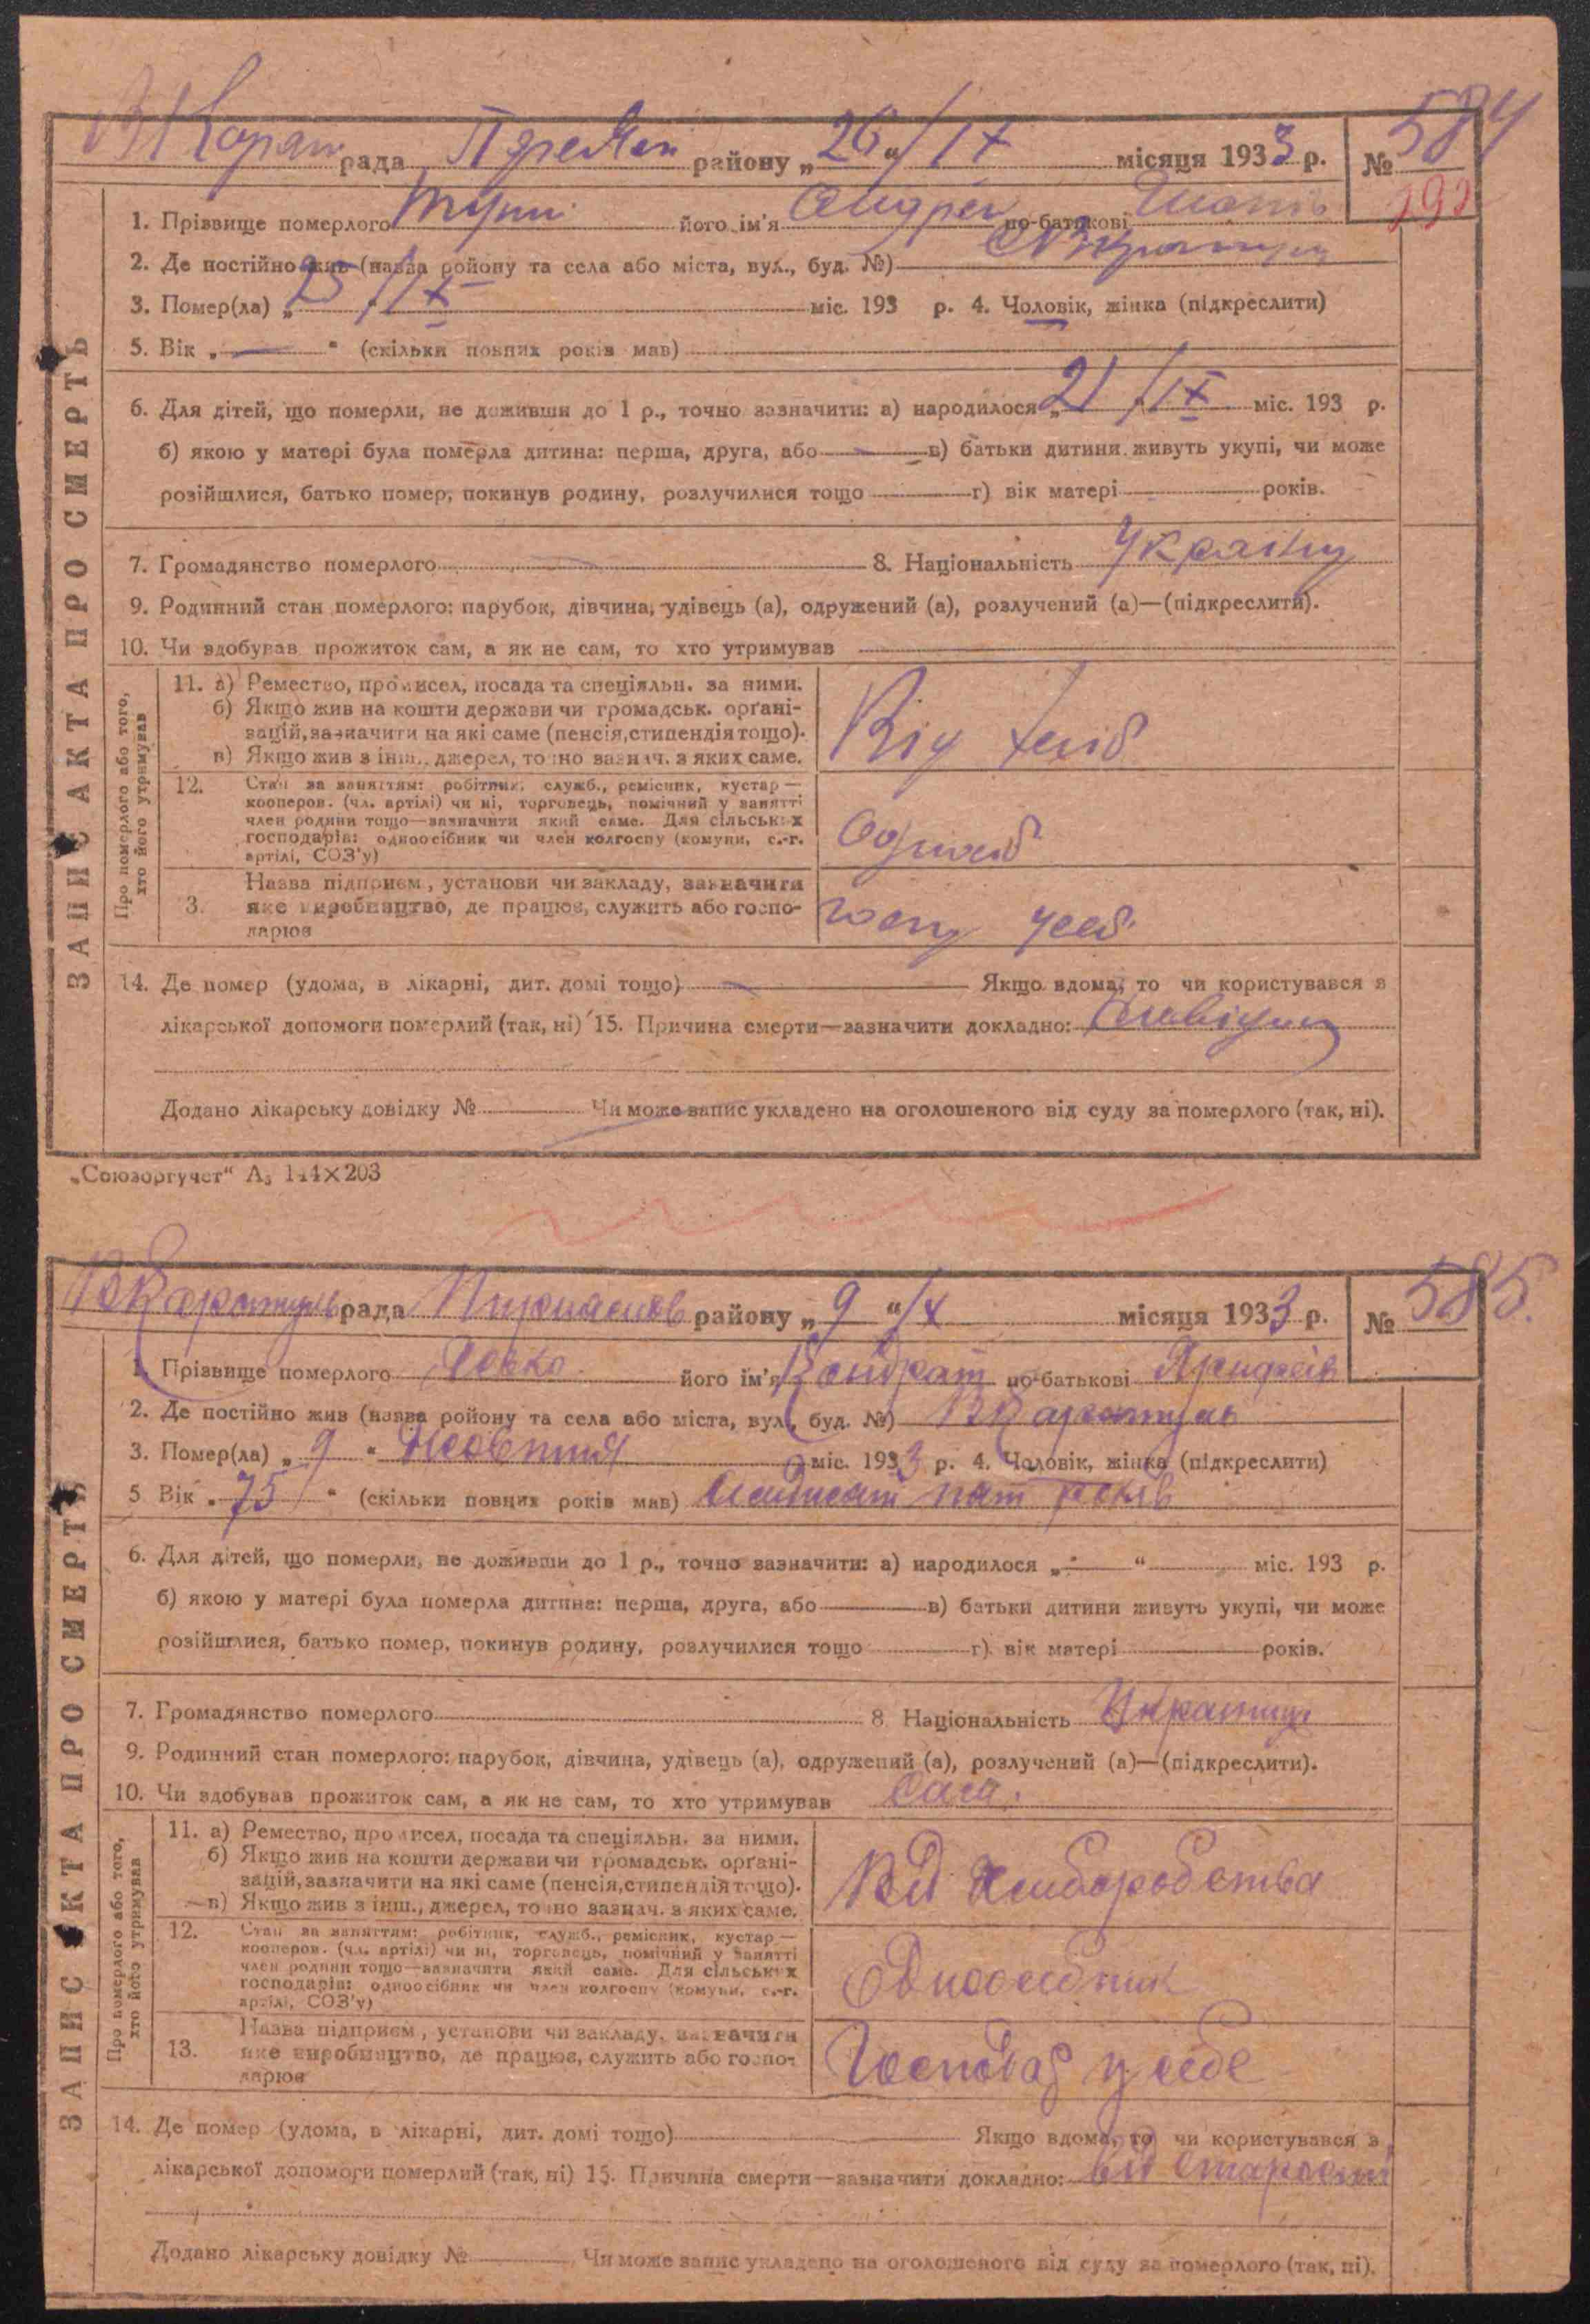 рада району „ 26 “ / IX місяця 1933 р. № 584
191
1. Прізвище померлого його ім'я Андрей по-батькові
2. Де постійно жив (назва ройону та села або міста, вул., буд. №)
3. Помер(ла) „ 25 / IX міс. 193 р. 4. Чоловік, жінка (підкреслити)
5. Вік „ — “ (скільки повних років мав)
6. Для дітей, що померли, не доживши до 1 р., точно зазначити: а) народилося „ 21 / IX міс. 193 р.
б) якою у матері була померла дитина: перша, друга, або — в) батьки дитини живуть укупі, чи може
розійшлися, батько помер, покинув родину, розлучилися тощо г) вік матері років.
7. Громадянство померлого 8. Національність Україну
9. Родинний стан померлого: парубок, дівчина, удівець (а), одружений (а), розлучений (а)—(підкреслити).
10. Чи здобував прожиток сам, а як не сам, то хто утримував
ЗАПИС АКТА ПРО СМЕРТЬ
Про померлого або того,
хто його утримував
11. а) Ремество, промисел, посада та спеціяльн. за ними.
б) Якщо жив на кошти держави чи громадськ. орґані-
зацій, зазначити на які саме (пенсія, стипендія тощо).
в) Якщо жив з інш., джерел, точно зазнач. з яких саме.
Від хліб
12. Стан за заняттям: робітник, служб., ремісник, кустар—
кооперов. (чл. артілі) чи ні, торговець, помічний у занятті
член родини тощо—зазначити який саме. Для сільських
господарів: одноосібник чи член колгоспу (комуни, с.-г.
артілі, СОЗ'у)
Назва підприєм., установи чи закладу, зазначити
3. яке виробництво, де працює, служить або госпо-
дарює
14. Де помер (удома, в лікарні, дит. домі тощо) — Якщо вдома, то чи користувався з
лікарської допомоги померлий (так, ні) 15. Причина смерти—зазначити докладно:
Додано лікарську довідку № Чи може запис укладено на оголошеного від суду за померлого (так, ні).
„Союзоргучет“ А₅ 144×203
рада району „ 9 “ / X місяця 1933 р. № 585.
1. Прізвище померлого його ім'я Кондрат по-батькові
2. Де постійно жив (назва ройону та села або міста, вул., буд. №) В Каратуль
3. Помер(ла) „ 9 “ Жовтня міс. 1933 р. 4. Чоловік, жінка (підкреслити)
5 Вік „ 75 “ (скільки повних років мав) Сімдисят пат років
6. Для дітей, що померли, не доживши до 1 р., точно зазначити: а) народилося „ — “ міс. 193 р.
б) якою у матері була померла дитина: перша, друга, або — в) батьки дитини живуть укупі, чи може
розійшлися, батько помер, покинув родину, розлучилися тощо г) вік матері років.
7. Громадянство померлого 8 Національність Украинц
9. Родинний стан померлого: парубок, дівчина, удівець (а), одружений (а), розлучений (а)—(підкреслити).
10. Чи здобував прожиток сам, а як не сам, то хто утримував Сам.
ЗАПИС АКТА ПРО СМЕРТЬ
Про померлого або того,
хто його утримував
11. а) Ремество, промисел, посада та спеціяльн. за ними.
б) Якщо жив на кошти держави чи громадськ. орґані-
зацій, зазначити на які саме (пенсія, стипендія тощо).
в) Якщо жив з інш., джерел, точно зазнач. з яких саме.
Від Хлиборобства
12. Стан за заняттям: робітник, служб., ремісник, кустар—
кооперов. (чл. артілі) чи ні, торговець, помічний у занятті
член родини тощо—зазначити який саме. Для сільських
господарів: одноосібник чи член колгоспу (комуни, с.-г.
артілі, СОЗ'у)
Одноосібник
Назва підприєм., установи чи закладу, зазначити
13. яке виробництво, де працює, служить або госпо-
дарює
Господар у себе
14. Де помер (удома, в лікарні, дит. домі тощо) Якщо вдома, то чи користувався з
лікарської допомоги померлий (так, ні) 15. Причина смерти—зазначити докладно: від старости
Додано лікарську довідку № Чи може запис укладено на оголошеного від суду за померлого (так, ні).